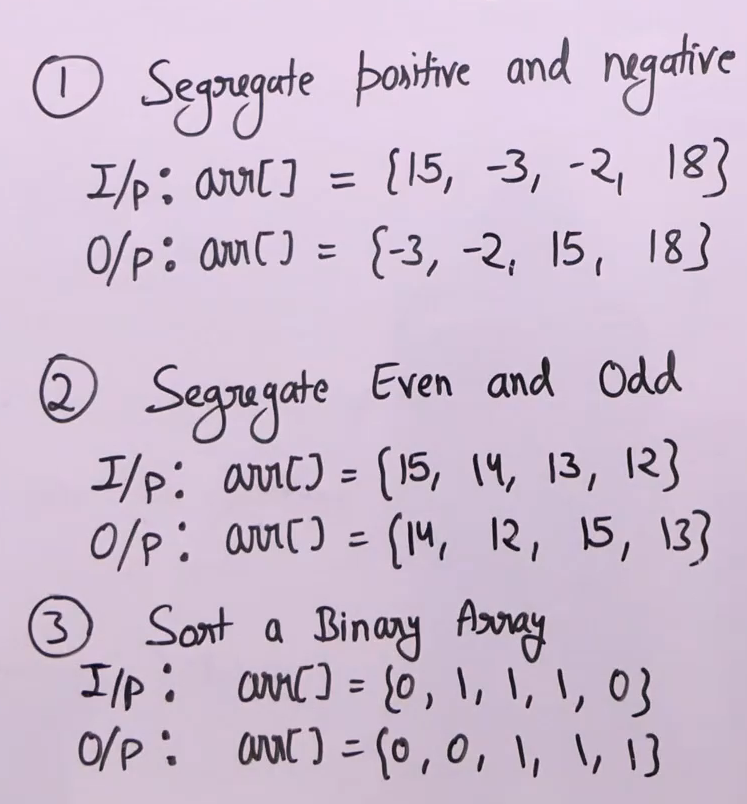 ① Segregate positive and negative
I/p: arr[] = {15, -3, -2, 18}
O/p: arr[] = {-3, -2, 15, 18}
② Segregate Even and Odd
I/p: arr[] = {15, 14, 13, 12}
O/p: arr[] = {14, 12, 15, 13}
③ Sort a Binary Array
I/p: arr[] = {0, 1, 1, 1, 0}
O/p: arr[] = {0, 0, 1, 1, 1}